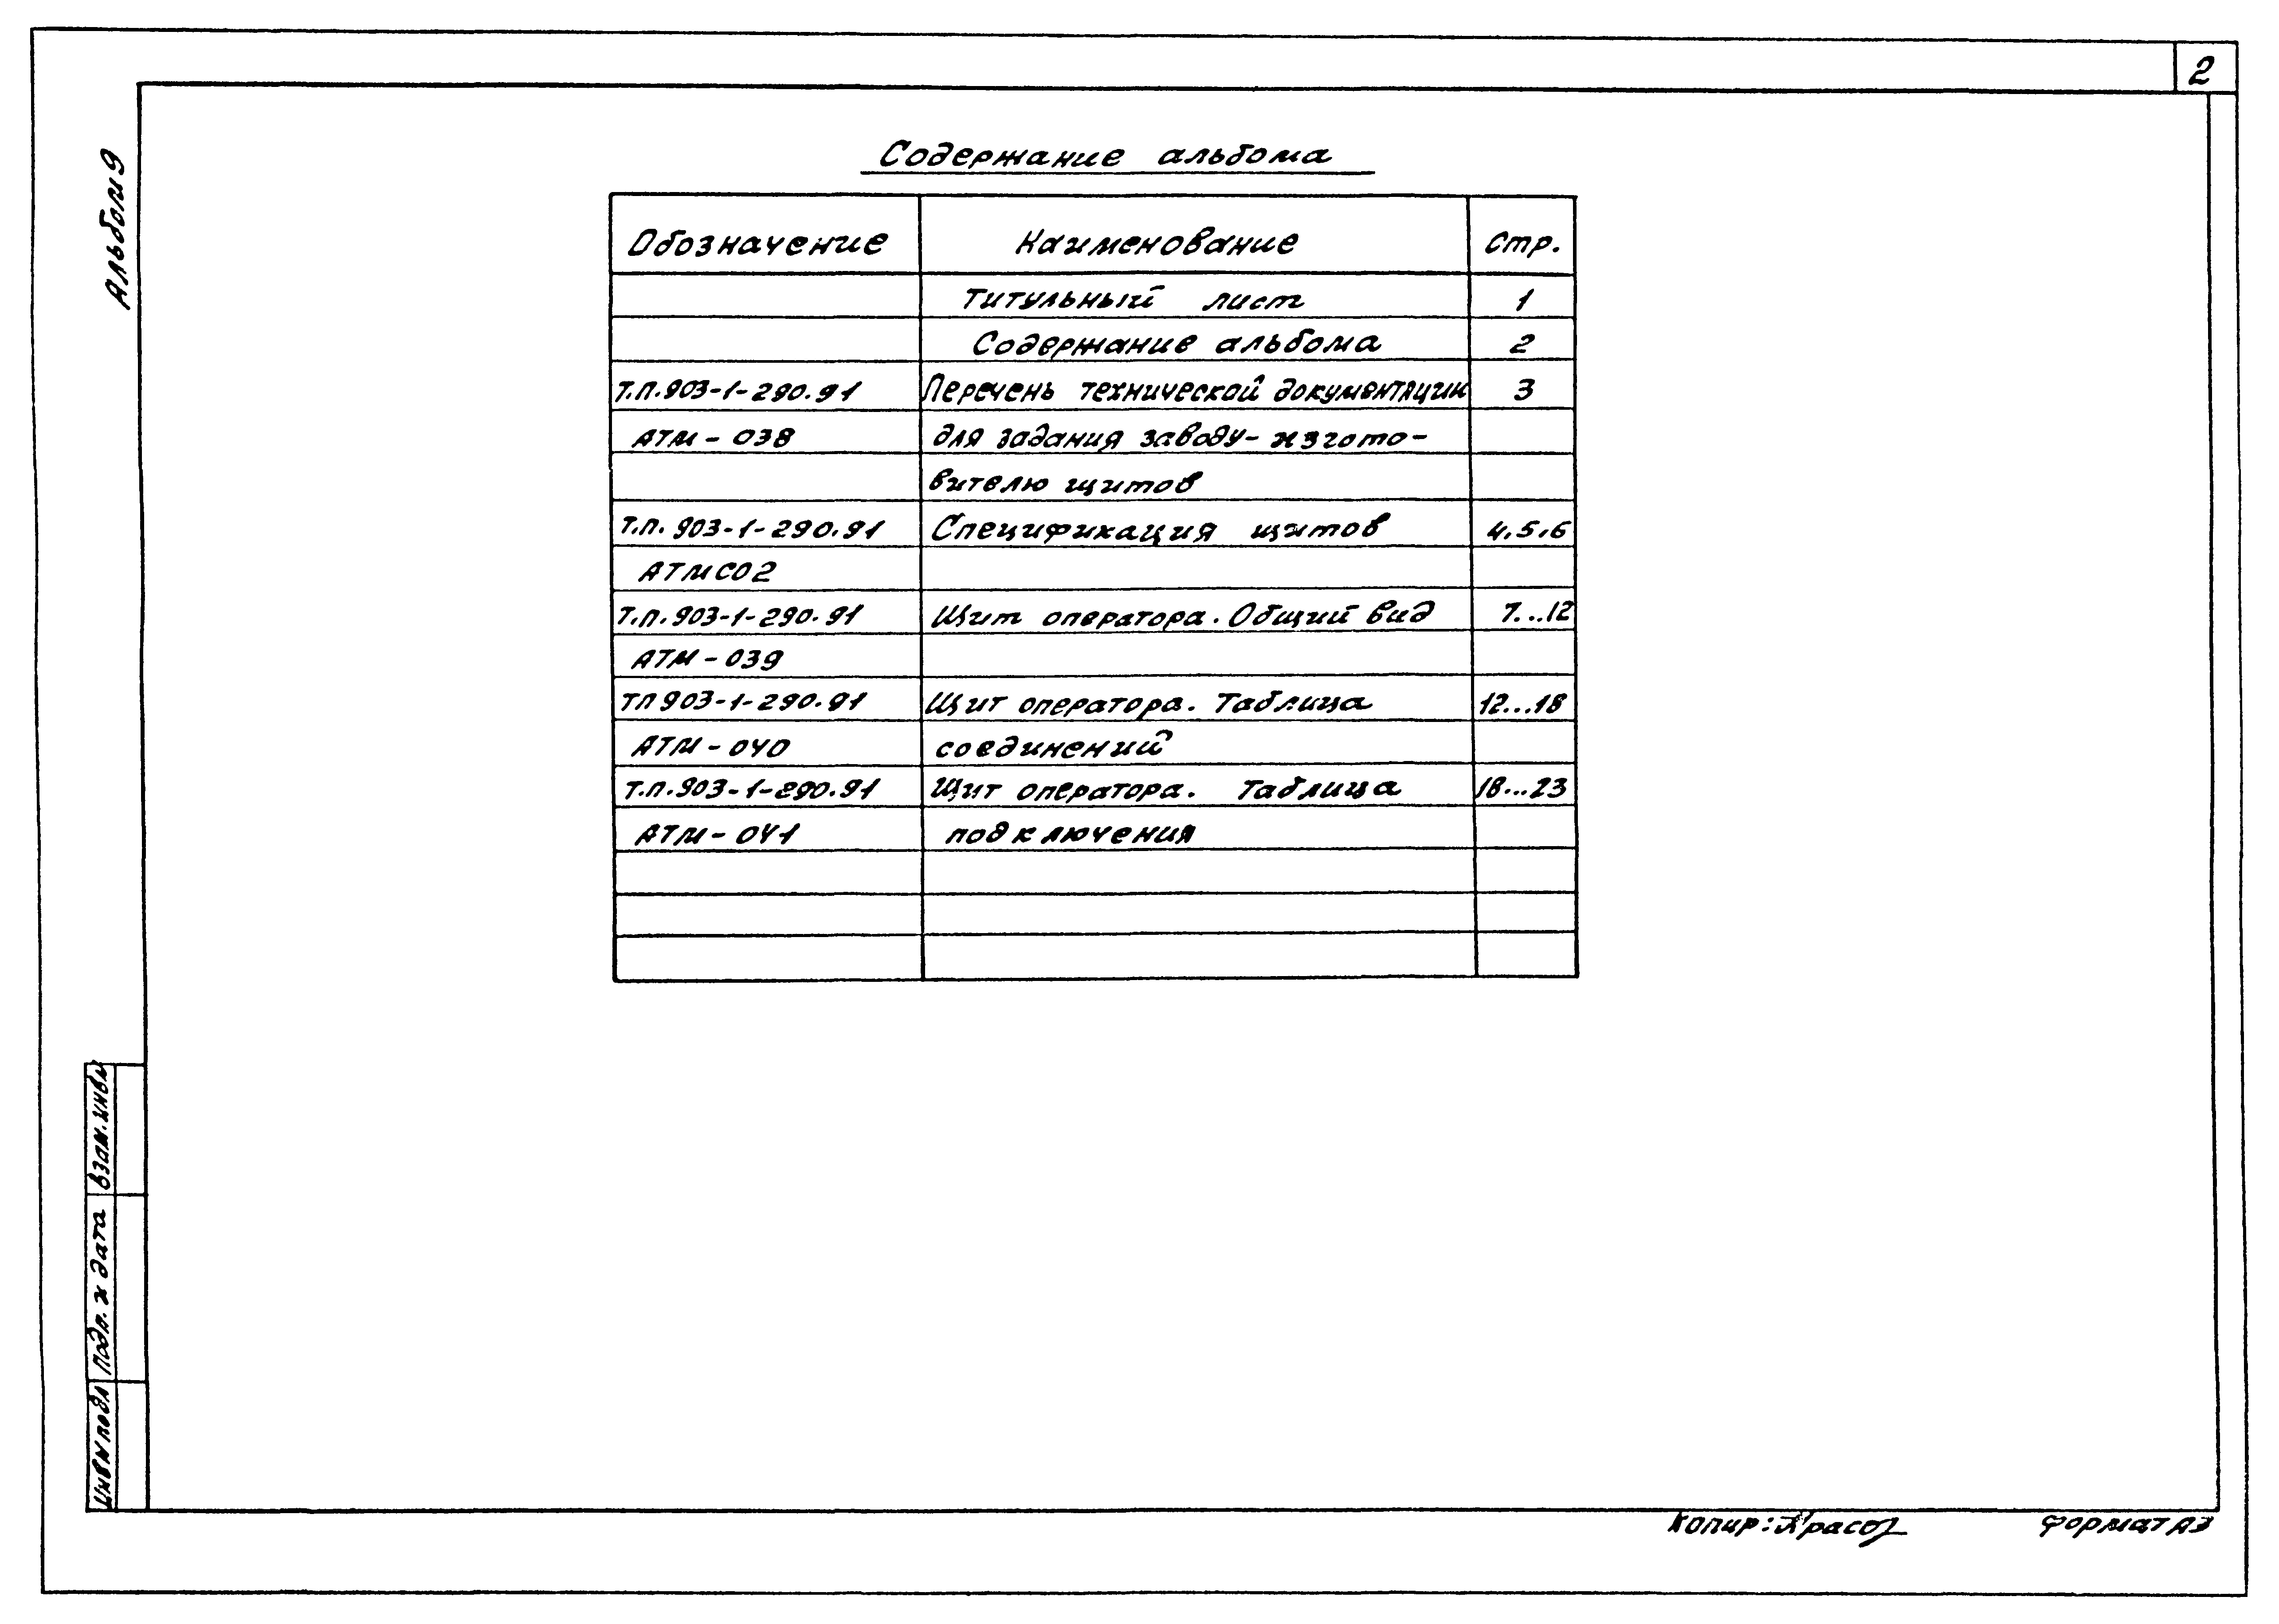 2
Альбом 9
Содержание альбома
Обозначение Наименование Стр.
Титульный лист 1
Содержание альбома 2
Т.П.903-1-290.91 Перечень технической документации 3
АТМ-038 для задания заводу-изгото-
вителю щитов
Т.П. 903-1-290.91 Спецификация щитов 4,5,6
АТМСО2
Т.П.903-1-290.91 Щит оператора. Общий вид 7...12
АТМ-039
ТП 903-1-290.91 Щит оператора. Таблица 12...18
АТМ-040 соединений
Т.П.903-1-290.91 Щит оператора. Таблица 18...23
АТМ-041 подключения
Взам. инв.№
Подп. и дата
Инв № подл
Копир: Формат А3